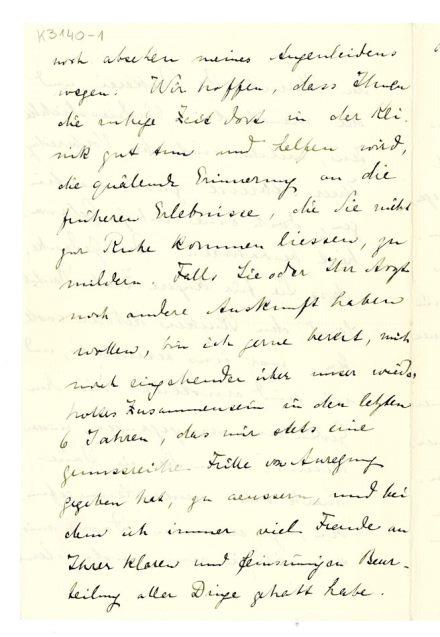 K3140-1
noch absehen meines Augenleidens
wegen. Wir hoffen, dass Ihnen
die ruhige Zeit dort in der Kli-
nik gut tun und helfen wird,
die quälende Erinnerung an die
früheren Erlebnisse, die Sie nicht
zur Ruhe kommen liessen, zu
mildern. Falls Sie oder Ihr Arzt
noch andere Auskunft haben
wollen, bin ich gerne bereit, mich
noch eingehender über unser wieder-
holtes Zusammensein in den letzten
6 Jahren, das mir stets eine
genussreiche Fülle von Anregung
gegeben hat, zu aeussern, und bei
dem ich immer viel Freude an
Ihrer klaren und feinsinnigen Beur-
teilung aller Dinge gehabt habe.